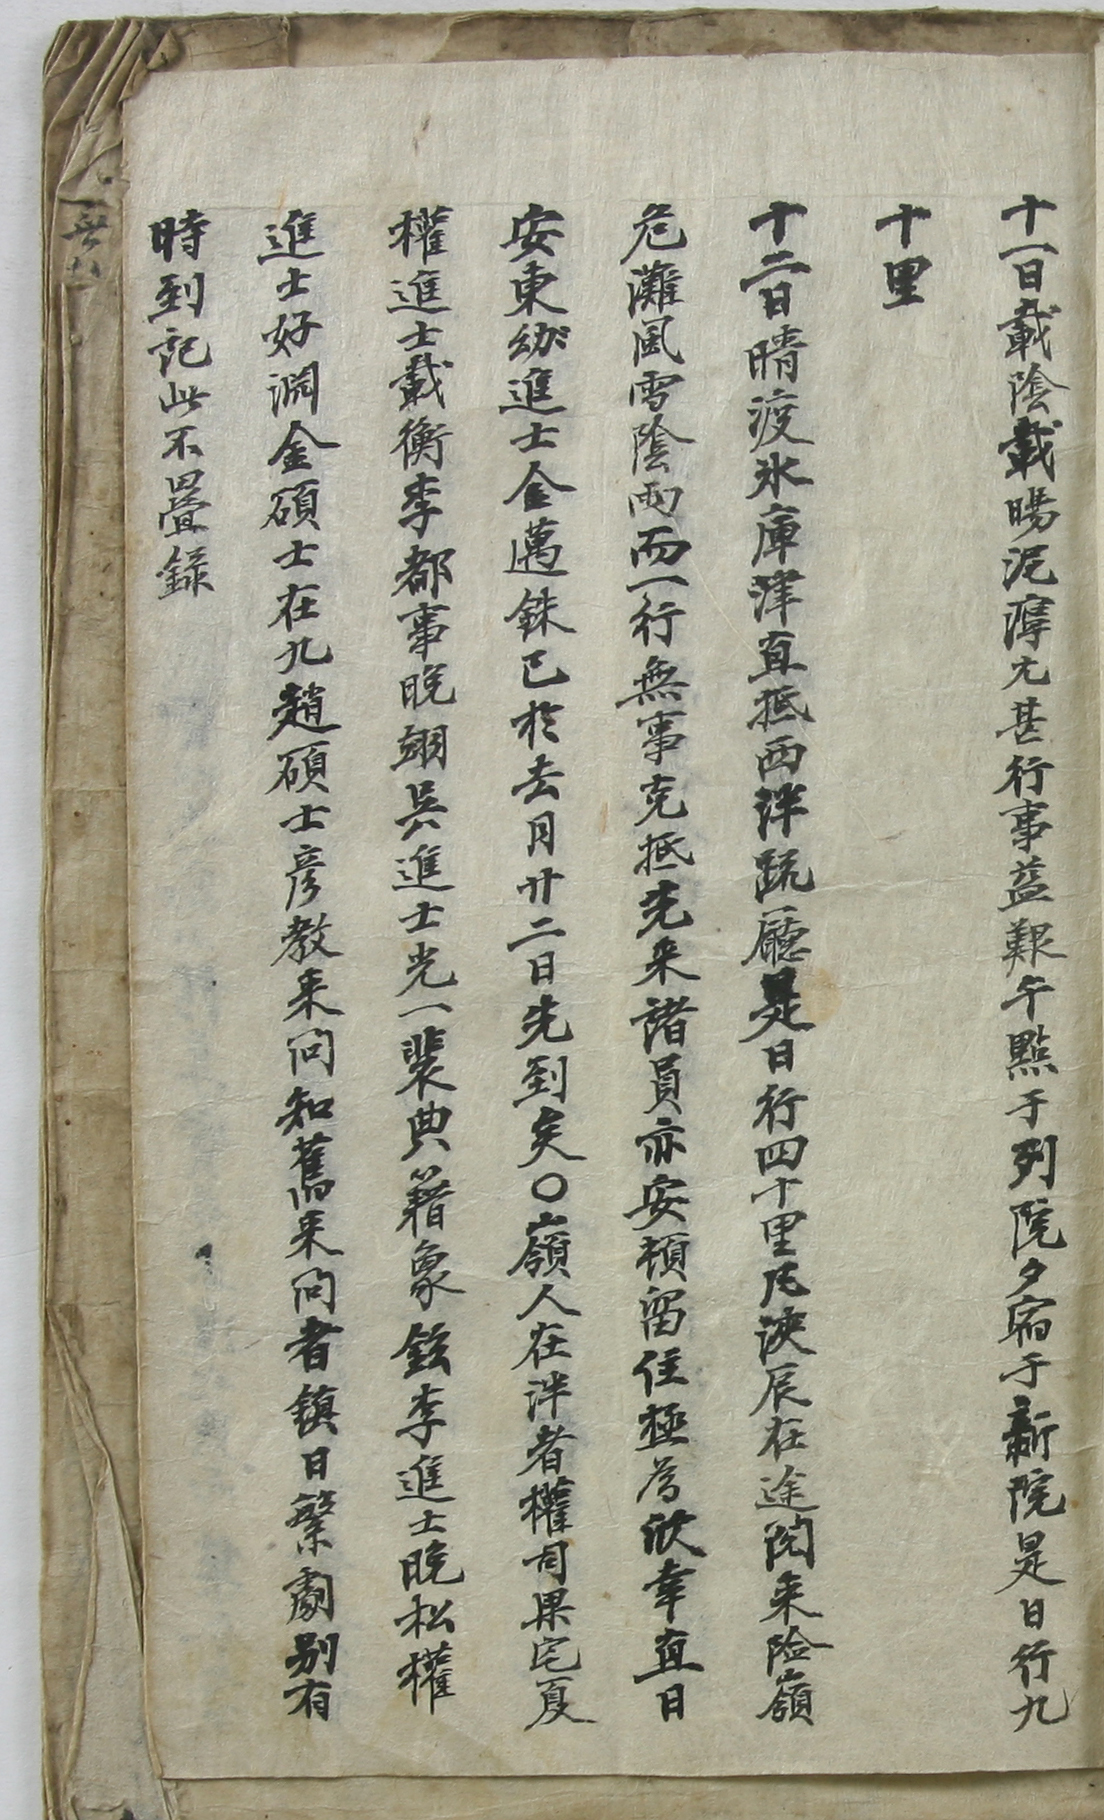 十一日載陰載暘泥濘尤甚行事益艱午點于列院夕宿于新院是日行九
十里
十二日晴渡氷庫津直抵西泮疏廳是日行四十里凡浹辰在途閱来險嶺
危灘風雪陰雨而一行無事克抵先来諸員亦安頓留住極為欣幸直日
安東幼進士金邁銖已於去月廿二日先到矣○嶺人在泮者權司果宅夏
權進士載衡李都事晚翊吳進士光一裴典籍象鉉李進士晚松權
進士好淵金碩士在九趙碩士彦教来问知舊来问者鎮日繁劇别有
時到記此不疊錄